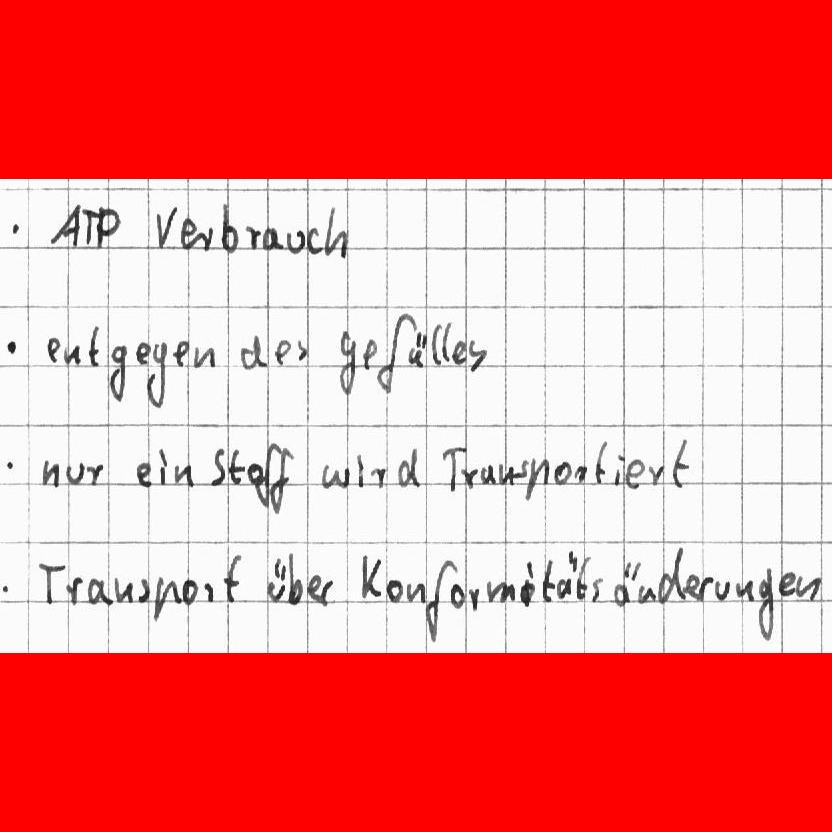 · ATP Verbrauch
· entgegen des gefälles
· nur ein Stoff wird Transportiert
· Transport über Konformitätsänderungen